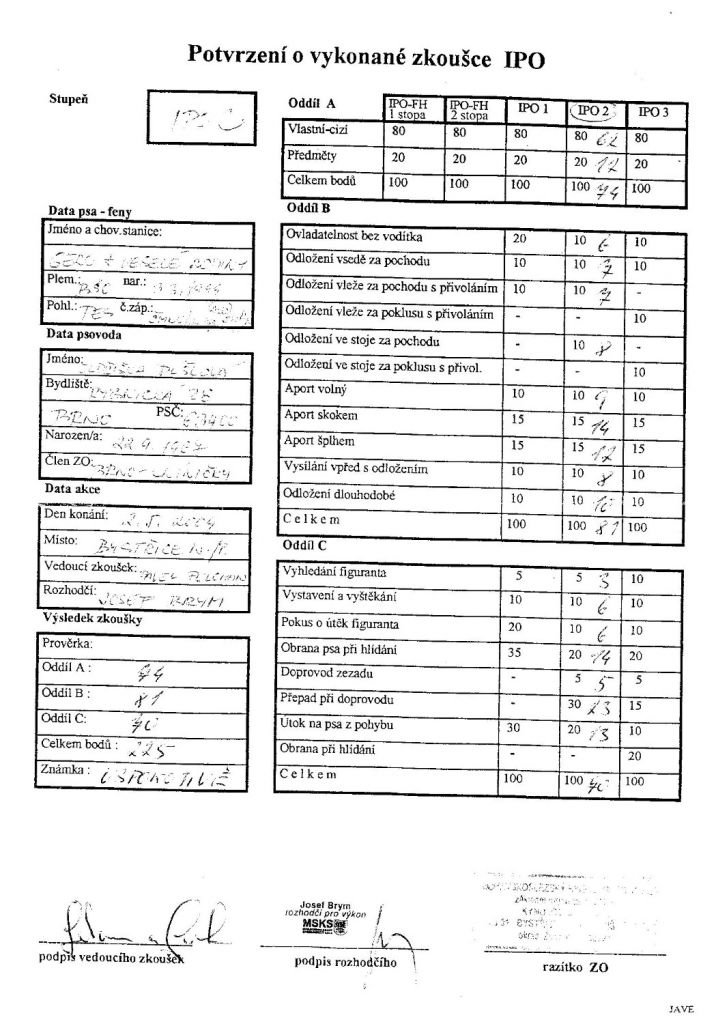 Potvrzení o vykonané zkoušce IPO
Stupeň
IPO 2
Oddíl A IPO-FH 1 stopa IPO-FH 2 stopa IPO 1 IPO 2 IPO 3
Vlastní-cizí 80 80 80 80 62 80
Předměty 20 20 20 20 12 20
Celkem bodů 100 100 100 100 74 100
Data psa - feny
Jméno a chov.stanice:
GERO
Plem.: nar.:
Pohl.: PES č.záp.:
Data psovoda
Jméno:
Bydliště:
BRNO PSČ:
Narozen/a: 22.9.
Člen ZO: BRNO-
Data akce
Den konání: 2.5.2004
Místo: BYSTŘICE N./P.
Vedoucí zkoušek: PAVEL
Rozhodčí: JOSEF BRYM
Výsledek zkoušky
Prověrka:
Oddíl A : 74
Oddíl B : 81
Oddíl C: 70
Celkem bodů : 225
Známka : USPOKOJIVĚ
Oddíl B
Ovladatelnost bez vodítka 20 10 6 10
Odložení vsedě za pochodu 10 10 7 10
Odložení vleže za pochodu s přivoláním 10 10 7 -
Odložení vleže za poklusu s přivoláním - - 10
Odložení ve stoje za pochodu - 10 8 -
Odložení ve stoje za poklusu s přivol. - - 10
Aport volný 10 10 9 10
Aport skokem 15 15 14 15
Aport šplhem 15 15 12 15
Vysílání vpřed s odložením 10 10 8 10
Odložení dlouhodobé 10 10 10 10
Celkem 100 100 81 100
Oddíl C
Vyhledání figuranta 5 5 3 10
Vystavení a vyštěkání 10 10 6 10
Pokus o útěk figuranta 20 10 6 10
Obrana psa při hlídání 35 20 14 20
Doprovod zezadu - 5 5 5
Přepad při doprovodu 30 23 15
Útok na psa z pohybu 30 20 13 10
Obrana při hlídání - - 20
Celkem 100 100 70 100
podpis vedoucího zkoušek
Josef Brym
rozhodčí pro výkon
MSKS
podpis rozhodčího
razítko ZO
JAVE